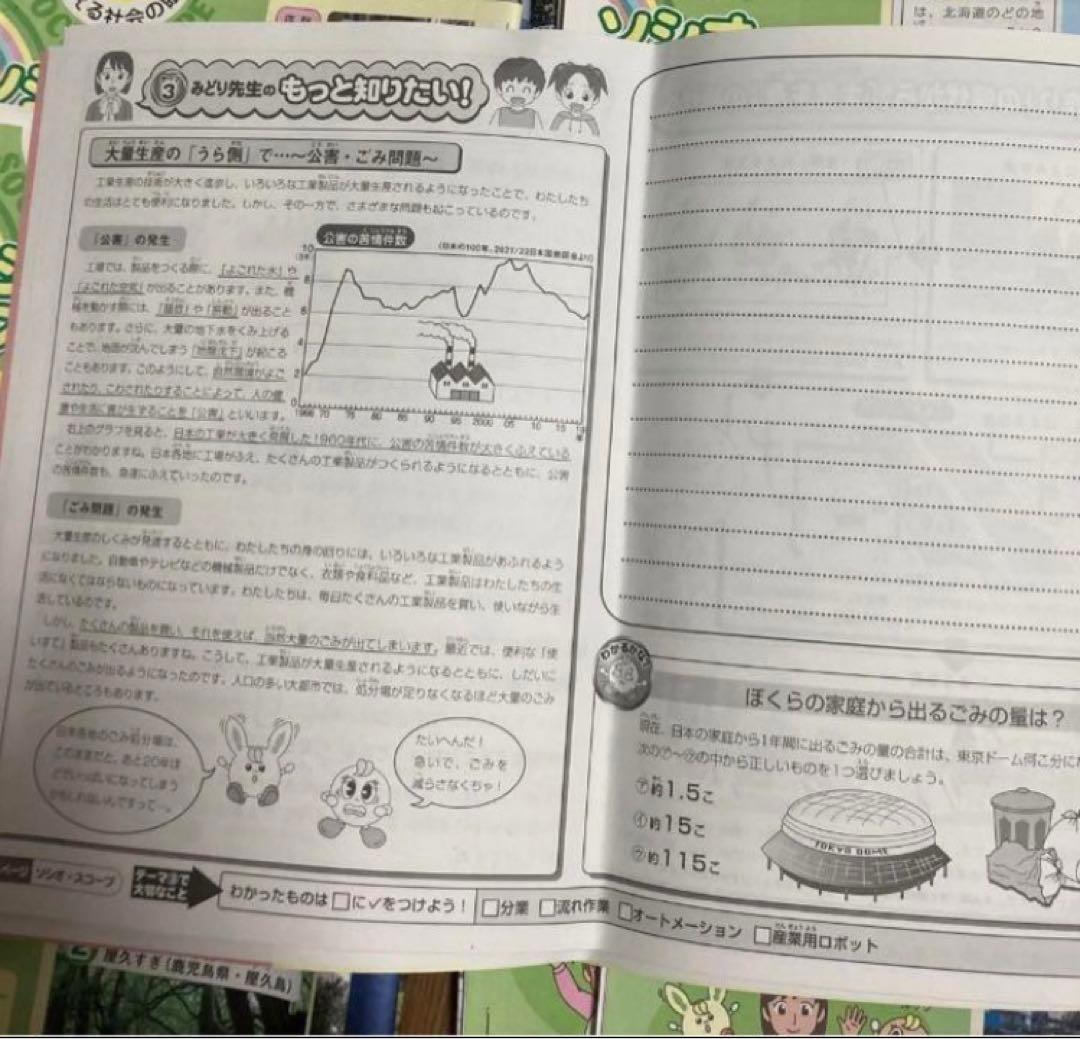 てる社会の
ソシオ
は、北海道のどの地
3 みどり先生の もっと知りたい!
大量生産の「うら側」で…～公害・ごみ問題～
工業生産の技術が大きく進歩し、いろいろな工業製品が大量生産されるようになったことで、わたしたち
の生活はとても便利になりました。しかし、その一方で、さまざまな問題も起こっているのです。
「公害」の発生
工場では、製品をつくる際に、「よごれた水」や
「よごれた空気」が出ることがあります。また、機
械を動かす際には、「騒音」や「振動」が出ること
もあります。さらに、大量の地下水をくみ上げる
ことで、地面が沈んでしまう「地盤沈下」が起こる
こともあります。このようにして、自然環境がよご
されたり、こわされたりすることによって、人の健
康や生活に害が生ずることを「公害」といいます。
公害の苦情件数
(日本の100年、2021/22日本国勢図会より)
10
8
6
4
2
0
1966 70 75 80 85 90 95 2000 05 10 15
右上のグラフを見ると、日本の工業が大きく発展した1960年代に、公害の苦情件数が大きくふえている
ことがわかりますね。日本各地に工場がふえ、たくさんの工業製品がつくられるようになるとともに、公害
の苦情件数も、急速にふえていったのです。
「ごみ問題」の発生
大量生産のしくみが発達するとともに、わたしたちの身の回りには、いろいろな工業製品があふれるよう
になりました。自動車やテレビなどの機械製品だけでなく、衣類や食料品など、工業製品はわたしたちの生
活になくてはならないものになっています。わたしたちは、毎日たくさんの工業製品を買い、使いながら生
活しているのです。
しかし、たくさんの製品を買い、それを使えば、当然大量のごみが出てしまいます。最近では、便利な「使
いすて」製品もたくさんありますね。こうして、工業製品が大量生産されるようになるとともに、しだいに
たくさんのごみが出るようになったのです。人口の多い大都市では、処分場が足りなくなるほど大量のごみ
が出ているところもあります。
日本各地のごみ処分場は、
このままだと、あと20年ほ
どでいっぱいになってしまう
かもしれないんですって…。
たいへんだ!
急いで、ごみを
減らさなくちゃ!
わかるかな?
ぼくらの家庭から出るごみの量は?
現在、日本の家庭から1年間に出るごみの量の合計は、東京ドーム何こ分に
次の㋐～㋒の中から正しいものを1つ選びましょう。
㋐約1.5こ
㋑約15こ
㋒約115こ
TOKYO DOME
ソシオ・スコープ
テーマ3で
大切なこと
わかったものは□に✓をつけよう! □分業 □流れ作業 □オートメーション □産業用ロボット
2 屋久すぎ(鹿児島県・屋久島)